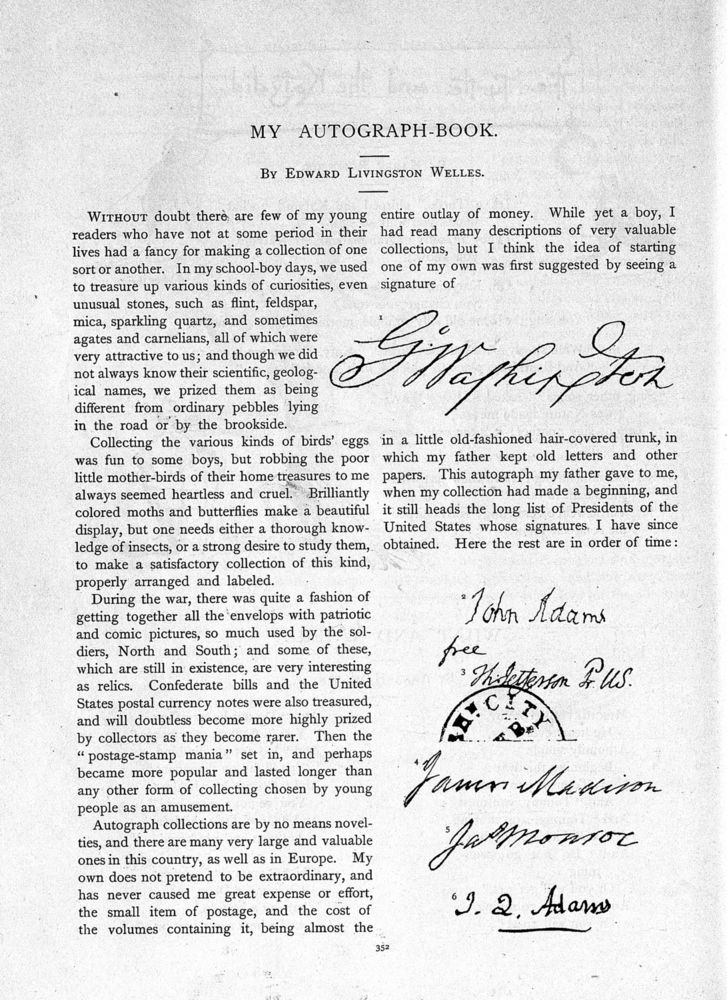 MY AUTOGRAPH-BOOK.
BY EDWARD LIVINGSTON WELLES.
WITHOUT doubt there are few of my young
readers who have not at some period in their
lives had a fancy for making a collection of one
sort or another. In my school-boy days, we used
to treasure up various kinds of curiosities, even
unusual stones, such as flint, feldspar,
mica, sparkling quartz, and sometimes
agates and carnelians, all of which were
very attractive to us; and though we did
not always know their scientific, geolog-
ical names, we prized them as being
different from ordinary pebbles lying
in the road or by the brookside.
Collecting the various kinds of birds' eggs
was fun to some boys, but robbing the poor
little mother-birds of their home treasures to me
always seemed heartless and cruel. Brilliantly
colored moths and butterflies make a beautiful
display, but one needs either a thorough know-
ledge of insects, or a strong desire to study them,
to make a satisfactory collection of this kind,
properly arranged and labeled.
During the war, there was quite a fashion of
getting together all the envelops with patriotic
and comic pictures, so much used by the sol-
diers, North and South; and some of these,
which are still in existence, are very interesting
as relics. Confederate bills and the United
States postal currency notes were also treasured,
and will doubtless become more highly prized
by collectors as they become rarer. Then the
"postage-stamp mania" set in, and perhaps
became more popular and lasted longer than
any other form of collecting chosen by young
people as an amusement.
Autograph collections are by no means novel-
ties, and there are many very large and valuable
ones in this country, as well as in Europe. My
own does not pretend to be extraordinary, and
has never caused me great expense or effort,
the small item of postage, and the cost of
the volumes containing it, being almost the
entire outlay of money. While yet a boy, I
had read many descriptions of very valuable
collections, but I think the idea of starting
one of my own was first suggested by seeing a
signature of
1 G. Washington
in a little old-fashioned hair-covered trunk, in
which my father kept old letters and other
papers. This autograph my father gave to me,
when my collection had made a beginning, and
it still heads the long list of Presidents of the
United States whose signatures I have since
obtained. Here the rest are in order of time:
2 John Adams
free
3 Th. Jefferson Pr. US.
CITY
4 James Madison
5 Jas Monroe
6 J. Q. Adams
352